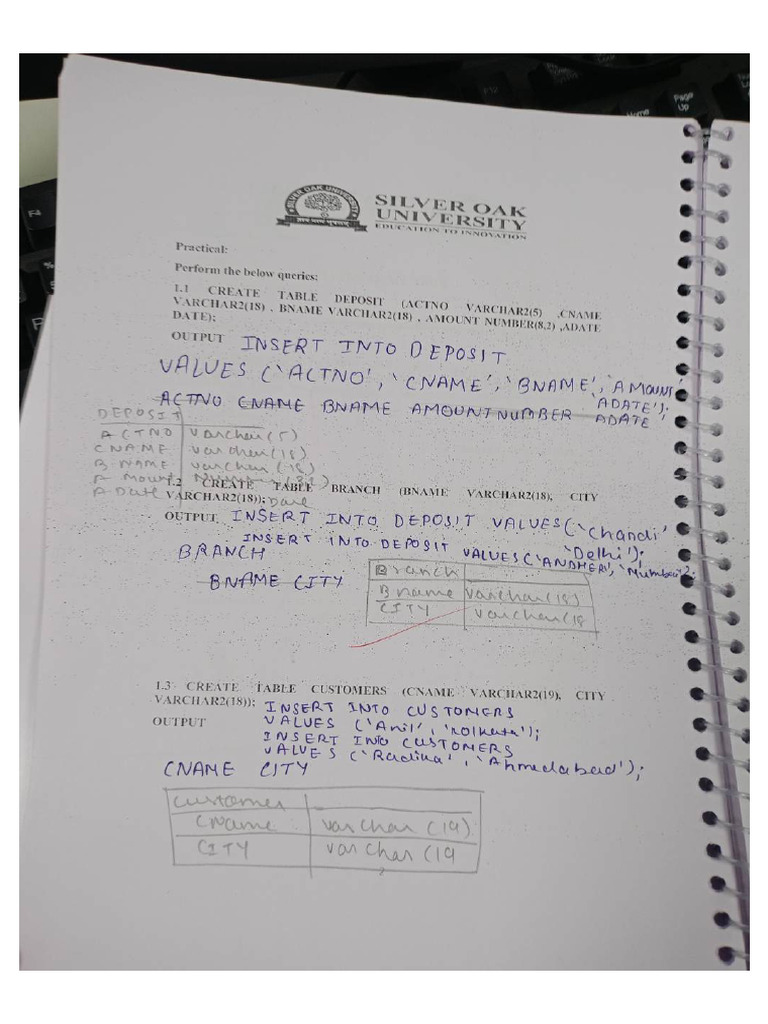 SILVER OAK
UNIVERSITY
EDUCATION TO INNOVATION
Practical:
Perform the below queries:
1.1 CREATE TABLE DEPOSIT (ACTNO VARCHAR2(5) ,CNAME
VARCHAR2(18) , BNAME VARCHAR2(18) , AMOUNT NUMBER(8,2) ,ADATE
DATE);
OUTPUT INSERT INTO DEPOSIT
VALUES ('ACTNO', 'CNAME', 'BNAME', 'AMOUNT'
'ADATE');
ACTNO CNAME BNAME AMOUNT NUMBER ADATE
DEPOSIT
ACTNO varchar(5)
CNAME varchar(18)
B NAME varchar(18)
A mount
A Date Date
1.2 CREATE TABLE BRANCH (BNAME VARCHAR2(18), CITY
VARCHAR2(18));
OUTPUT INSERT INTO DEPOSIT VALUES('Chandi'
'Delhi');
INSERT INTO DEPOSIT VALUES('ANDHERI', 'Mumbai');
BRANCH
BNAME CITY
Branch
Bname varchar(18)
CITY varchar(18
1.3 CREATE TABLE CUSTOMERS (CNAME VARCHAR2(19), CITY
VARCHAR2(18)); INSERT INTO CUSTOMERS
OUTPUT VALUES ('Anil', 'Kolkata');
INSERT INTO CUSTOMERS
VALUES ('Radika', 'Ahmedabad');
CNAME CITY
customer
CName varchar (19)
CITY varchar (19